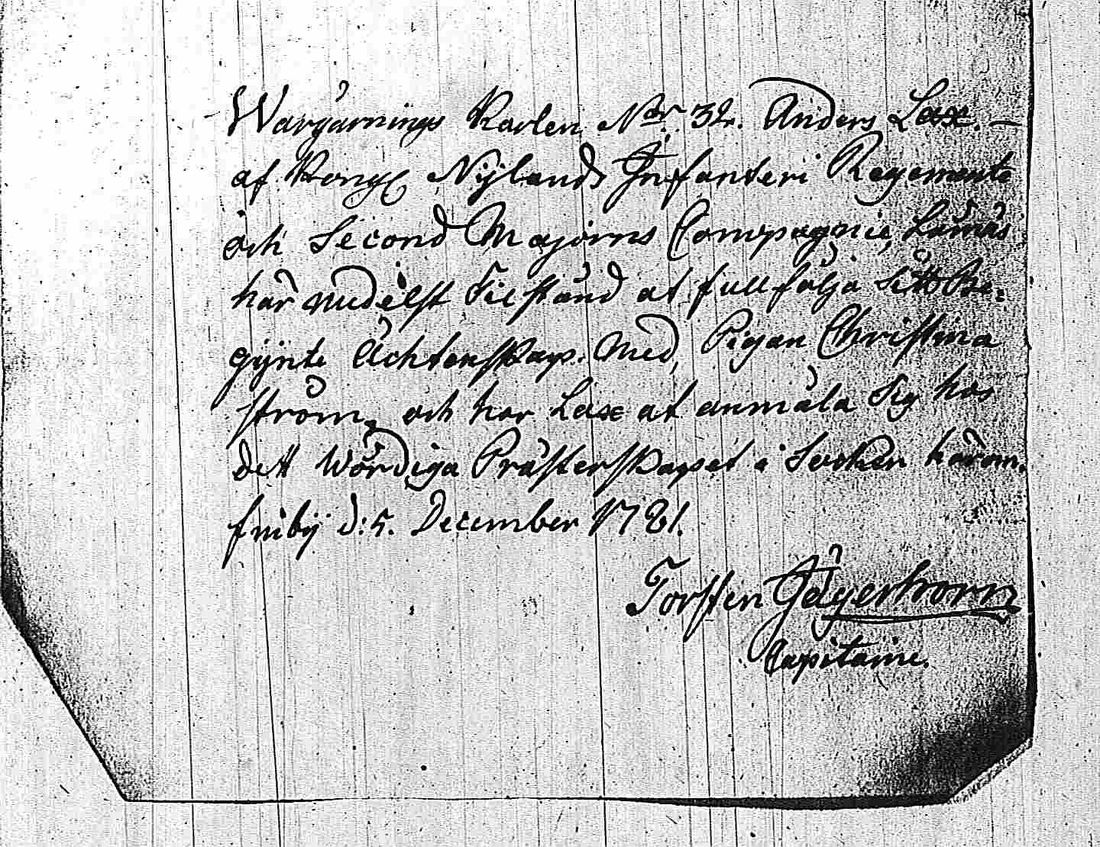 Wargärnings Karlen N:r 32. Anders Lax. –
af Kongl Nylands Infanteri Regemente
och Second Majorns Compagnie, Lämnas
här medelst Tilstånd at fullfölja Sitt Be-
gynte Ächtenskap. Med Pigan Christina
ström, och har Lax at anmäla Sig hos
dett Wördiga Prästerskapet i Socken härom,
d: 5. December 1781.
Torsten Jägerhorn
Capitaine.